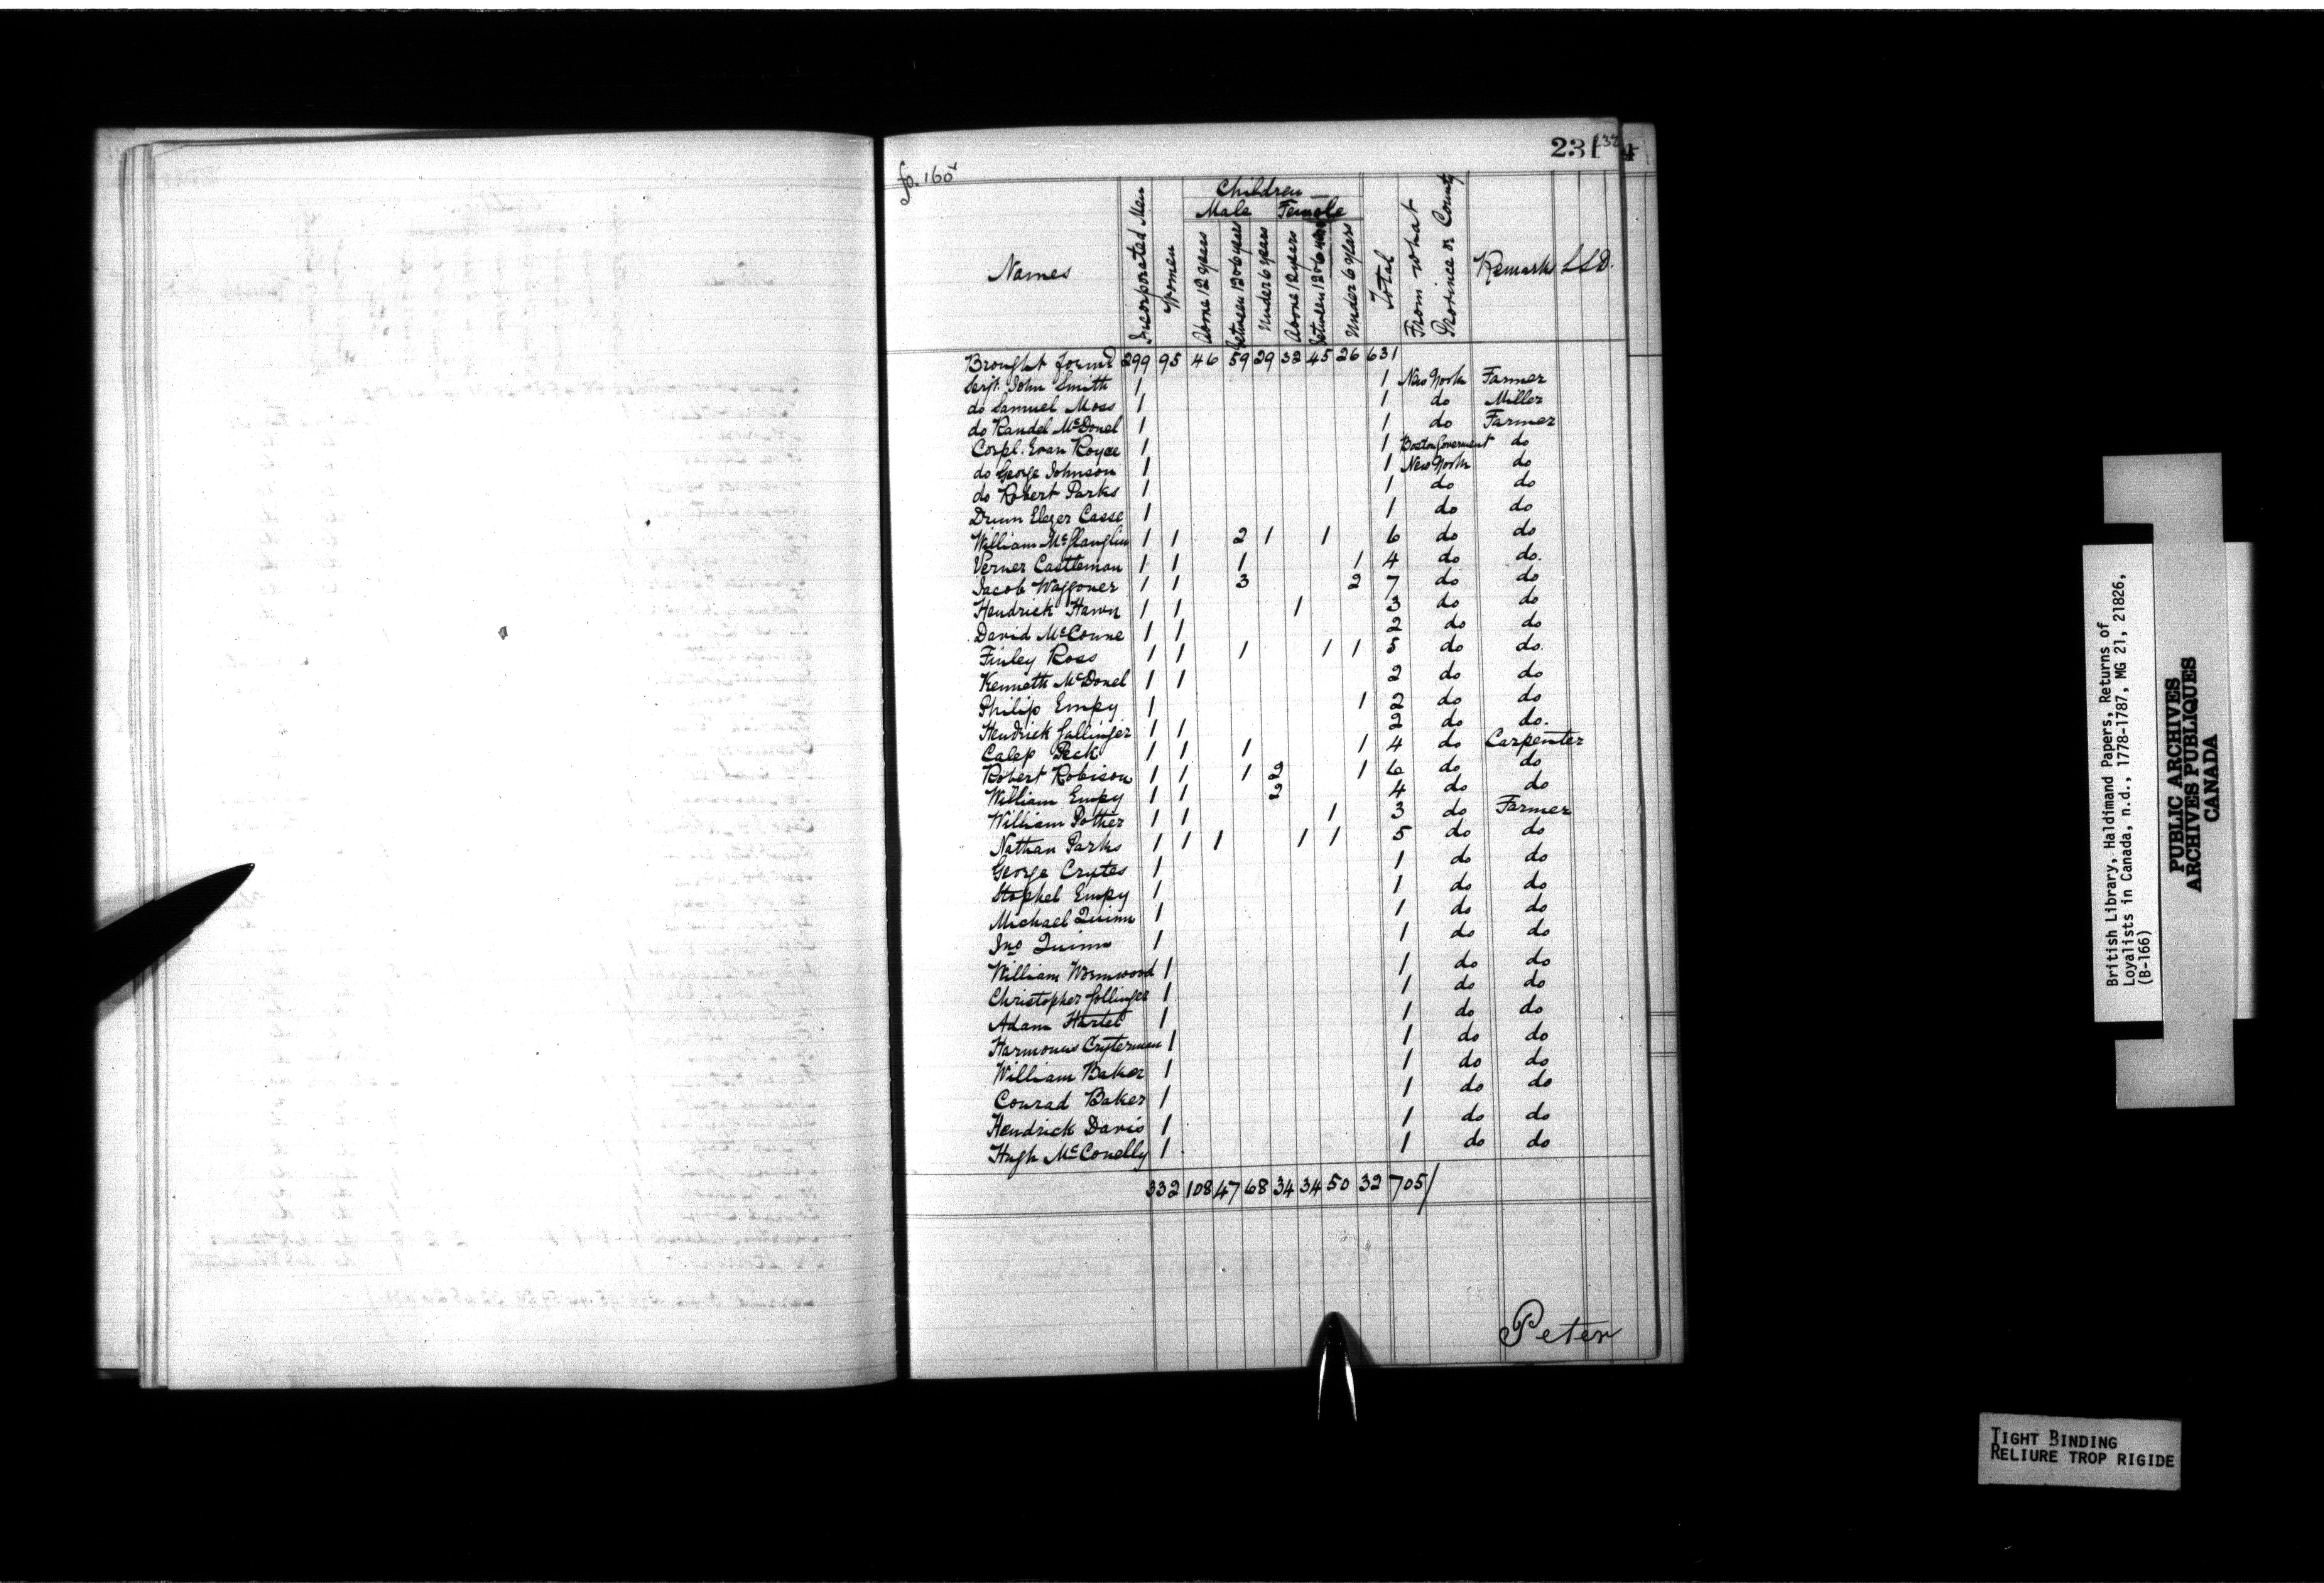 231 232 4
fo. 160
Children
Male Female
Names Incorporated Men Women Above 12 years Between 12 & 6 years Under 6 years Above 12 years Between 12 & 6 years Under 6 years Total From what Province or County Remarks L S D.
Brought forwd 299 95 46 59 29 32 45 26 631
Serjt. John Smith 1 1 New York Farmer
do Samuel Moss 1 1 do Miller
do Randel McDonel 1 1 do Farmer
Corpl. Evan Royce 1 1 Boston Goverment do
do George Johnson 1 1 New York do
do Robert Parks 1 1 do do
Drum Elezer Casse 1 1 do do
William McGlauglin 1 1 2 1 1 6 do do
Verner Castleman 1 1 1 1 4 do do.
Jacob Waggoner 1 1 3 2 7 do do
Hendrick Hawn 1 1 1 3 do do
David McConne 1 1 2 do do
Finley Ross 1 1 1 1 1 5 do do.
Kenneth McDonel 1 1 2 do do
Philip Empy 1 1 2 do do
Hendrick Gallinger 1 1 2 do do.
Calep Peck 1 1 1 1 4 do Carpenter
Robert Robison 1 1 1 2 1 6 do do
William Empy 1 1 2 4 do do
William Pother 1 1 1 3 do Farmer
Nathan Parks 1 1 1 1 1 5 do do
George Crytes 1 1 do do
Stophel Empy 1 1 do do
Michael Quinn 1 1 do do
Jno Quinn 1 1 do do
William Wormwood 1 1 do do
Christopher Gollinger 1 1 do do
Adam Hartel 1 1 do do
Harmonus Crysterman 1 1 do do
William Baker 1 1 do do
Conrad Baker 1 1 do do
Hendrick Davis 1 1 do do
Hugh McConelly 1 1 do do
332 108 47 68 34 34 50 32 705/
Peter
British Library, Haldimand Papers, Returns of
Loyalists in Canada, n.d., 1778-1787, MG 21, 21826,
(B-166)
PUBLIC ARCHIVES
ARCHIVES PUBLIQUES
CANADA
TIGHT BINDING
RELIURE TROP RIGIDE